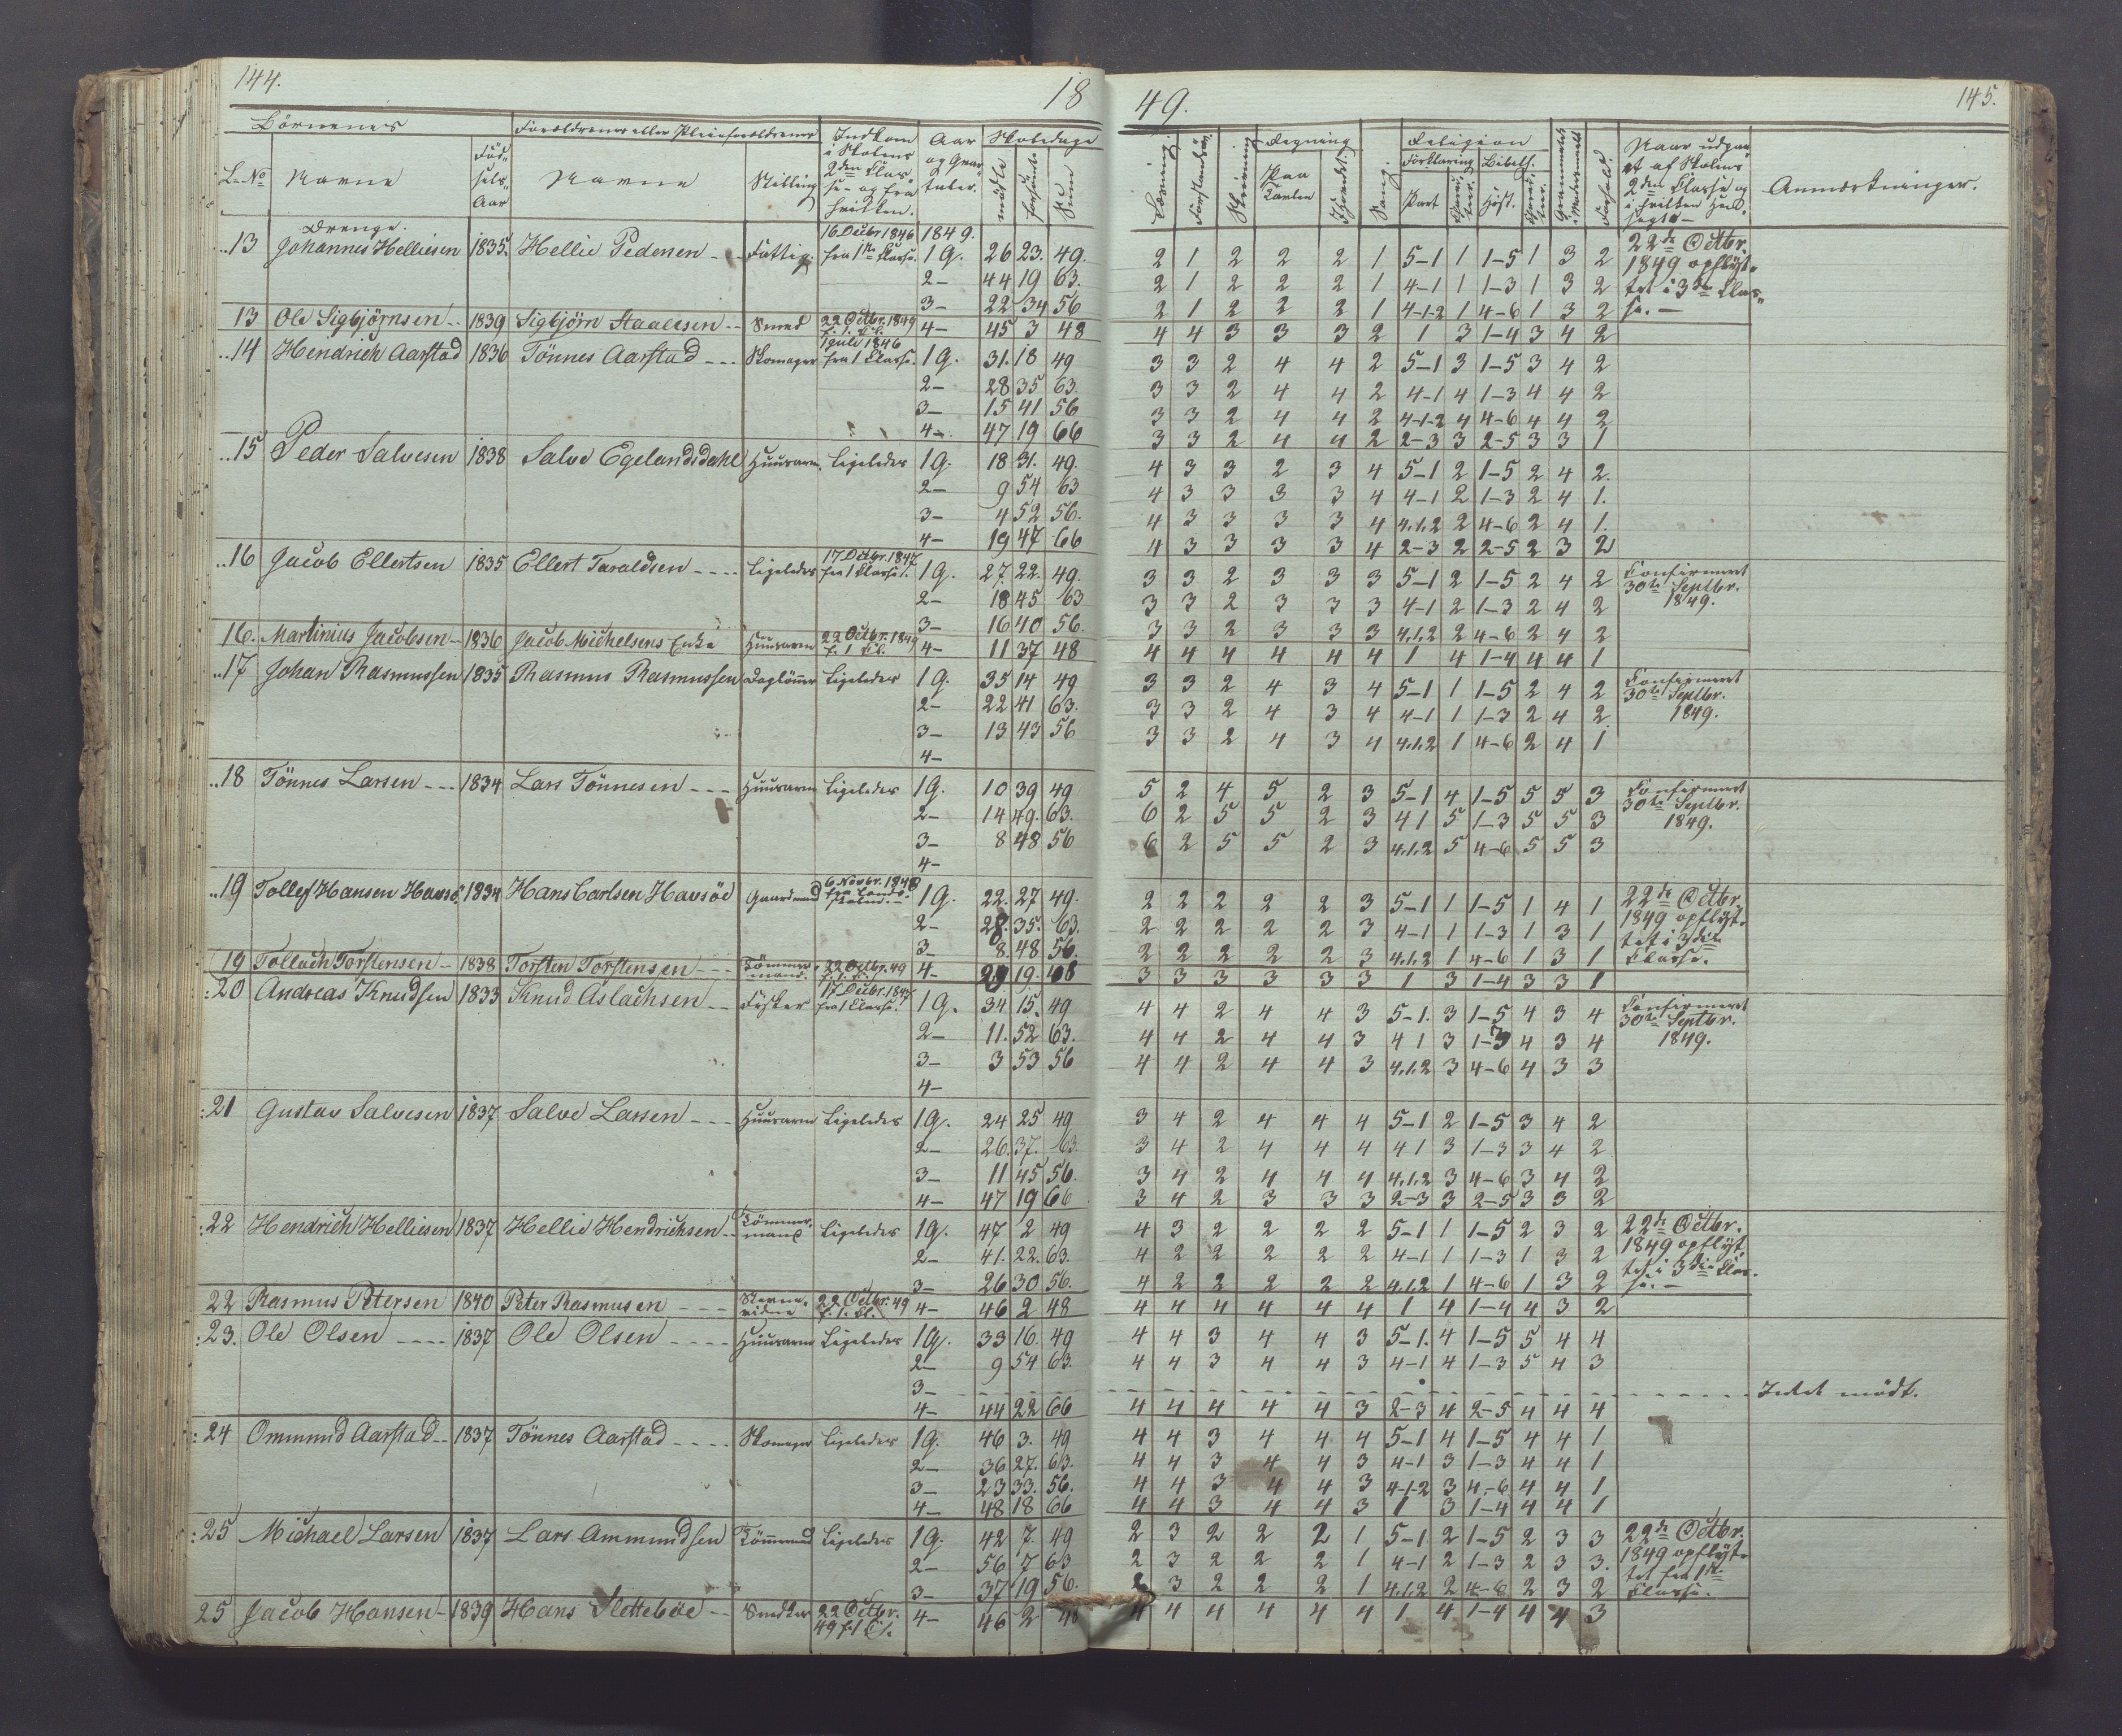 144.
18
49.
145.
Börnenes
Forældrenes eller Pleieforældrenes
Indkom i Skolens 2den Klasse og fra hvilken.
Aar og Qvartaler.
Skoledage
L. No
Navne
Födselsaar
Navne
Stilling
mödte
forsömte
Sum
Læsning.
Forstandöv.
Skrivning
Regning
paa Tavlen
Sang.
Religion
Forklaring
Bibelh.
Part
Hist.
Forhold.
Naar udgaaet af Skolens 2den Classe og i hvilken
Anmærkninger.
Drenge.
13 Johannes Helliesen 1835. Hellie Pedersen Fattig. 16 Decbr 1846 fra 1ste Klasse. 1849. 1 Q. 26 23. 49. 2 1 2 2 2 1 5-1 1 1-5 1 3 2 22de Octbr.
2- 44 19 63. 2 1 2 2 2 1 4-1 1 1-3 1 3 2 1849 opflyt-
3- 22 34 56 2 1 2 2 2 1 4-1-2 1 4-6 1 3 2 tet i 3die Classe.-
13 Ole Sigbjörnsen 1839 Sigbjörn Staalesen Smed 22 Octbr. 1849 f. 1. Kl. 4- 45 3 48 4 4 3 3 3 2 1 3 1-4 3 4 2
14 Hendrich Aarstad 1836 Tönnes Aarstad Skomager 1 Juli 1846 fra 1 Klasse. 1 Q. 31. 18 49 3 3 2 4 4 2 5-1 3 1-5 3 4 2
2- 28 35 63. 3 3 2 4 4 2 4-1 4 1-3 4 4 2
3- 15 41 56 3 3 2 4 4 2 4-1-2 4 4-6 4 4 2
4- 47 19 66 3 3 2 4 4 2 2-3 3 2-5 3 3 1
15 Peder Salvesen 1838 Salve Egelandsdahl Huusarm. Ligeledes 1 Q. 18 31. 49. 4 3 3 2 3 4 5-1 2 1-5 2 4 2.
2- 9 54 63 4 3 3 3 3 4 4-1 2 1-3 2 4 1.
3- 4 52 56. 4 3 3 3 3 4 4.1.2 2 4-6 2 4 1.
4- 19 47 66 4 3 3 3 3 4 2-3 2 2-5 2 3 2
16 Jacob Ellertsen 1835 Ellert Taraldsen Ligeledes 17 Octbr. 1847 fra 1 Klasse. 1 Q. 27. 22. 49. 3 3 2 3 3 3 5-1 2 1-5 2 4 2 Confirmeret
2- 18 45 63 3 3 2 3 3 3 4-1 2 1-3 2 4 2 30te Septbr.
3- 16 40 56. 3 3 2 3 3 3 4.1.2 2 4-6 2 4 2 1849.
16. Martinius Jacobsen 1836 Jacob Michelsens Enke Huusarm 22 Octbr. 1849 f. 1 Kl. 4- 11 37 48 4 4 4 4 4 4 1 4 1-4 4 4 1
17 Johan Rasmussen 1835 Rasmus Rasmussen Daglönner Ligeledes 1 Q. 35 14 49 3 3 2 4 3 4 5-1 1 1-5 2 4 2 Confirmeret
2- 22 41 63. 3 3 2 4 3 4 4-1 1 1-3 2 4 2. 30te Septbr.
3- 13 43 56 3 3 2 4 3 4 4.1.2 1 4-6 2 4 1 1849.
4-
18 Tönnes Larsen 1834 Lars Tönnesen Huusarm Ligeledes 1 Q. 10 39 49 5 2 4 5 2 3 5-1 4 1-5 5 5 3 Confirmeret
2- 14 49. 63. 6 2 5 5 2 3 4 1 5 1-3 5 5 3 30te Septbr.
3- 8 48 56 6 2 5 5 2 3 4.1.2 5 4-6 5 5 3 1849.
4-
19 Tollef Hansen Havsö 1834 Hans Carlsen Havsöe Gaardmand 6 Novbr. 1848 fra Lands- skolen. 1 Q. 22. 27 49. 2 2 2 2 2 3 5-1 1 1-5 1 4 1 22de Octbr.
2- 28. 35. 63. 2 2 2 2 2 3 4-1 1 1-3 1 3 1 1849 opflyt-
3- 8. 48 56. 2 2 2 2 2 3 4.1.2 1 4-6 1 3 1 tet i 3die Classe.
19 Tollach Torstensen 1838 Torsten Torstensen Tömmermand. 22 Octbr. 49 f. 1. Kl. 4- 29 19. 48 3 3 3 3 3 3 1 3 1-4 3 3 1
20 Andreas Knudsen 1833 Knud Aslachsen Fisker 17 Decbr. 1847 fra 1 Classe. 1 Q. 34 15. 49 4 4 2 4 4 3 5-1. 3 1-5 4 3 4 Confirmeret
2- 11. 52 63. 4 4 2 4 4 3 4 1 3 1-3 4 3 4 30te Septbr.
3- 3 53 56 4 4 2 4 4 3 4.1.2 3 4-6 4 3 3 1849.
4-
21 Gustav Salvesen 1837 Salve Larsen Huusarm Ligeledes 1 Q. 24 25 49 3 4 2 4 4 4 5-1 2 1-5 3 4 2
2- 26. 37. 63. 3 4 2 4 4 4 4 1 3 1-3 3 4 2
3- 11 45 56. 3 4 2 4 4 4 4.1.2 3 4-6 3 4 2
4- 47 19 66 3 4 2 3 3 3 2-3 3 2-5 3 3 2
22 Hendrich Helliesen 1837 Hellie Hendrichsen Tömmermand Ligeledes 1 Q. 47 2 49 4 3 2 2 2 2 5-1 1 1-5 2 3 2 22de Octbr.
2- 41. 22. 63. 4 2 2 2 2 2 4-1 1 1-3 1 3 2 1849 opflyt-
3- 26 30 56. 4 2 2 2 2 2 4.1.2 1 4-6 1 3 2 tet i 3die Classe.-
22 Rasmus Petersen 1840 Peter Rasmusen 22 Octbr. 49 f. 1. Kl. 4- 46 2 48 4 4 4 4 4 4 1 4 1-4 4 3 2
23. Ole Olsen 1837 Ole Olsen Huusarm Ligeledes 1 Q. 33 16. 49 4 4 3 4 4 3 5-1. 4 1-5 5 4 4
2- 9 54 63. 4 4 3 4 4 3 4-1 4 1-3 5 4 3
3- Intet mödt.
4- 44 22 66 4 4 4 4 4 3 2-3 4 2-5 4 4 4
24 Ommund Aarstad 1837 Tönnes Aarstad Skomager Ligeledes 1 Q. 46 3. 49 4 4 3 4 4 4 5-1 4 1-5 4 4 1
2- 36 27. 63. 4 4 3 4 4 3 4-1 3 1-3 4 4 1
3- 23 33. 56. 4 4 3 4 4 3 4-1-2 3 4-6 4 4 1
4- 48 18 66 4 4 3 4 4 3 1 3 1-4 4 4 1
25 Michael Larsen 1837 Lars Ammundsen Tömmermand Ligeledes 1 Q. 42 7. 49 2 3 2 2 2 1 5-1 2 1-5 2 3 3 22de Octbr.
2- 56 7 63 2 3 2 2 2 1 4-1 2 1-3 2 3 3. 1849 opflyt-
3- 37 19 56. 2 3 2 2 2 1 4.1.2 2 4-6 2 3 2 tet fra 1ste Classe.
25 Jacob Hansen 1839 Hans Slettebøe Snedker 22 Octbr. 49 f. 1 Cl. 4- 46 2 48 4 4 4 4 4 4 1 4 1-4 4 4 3